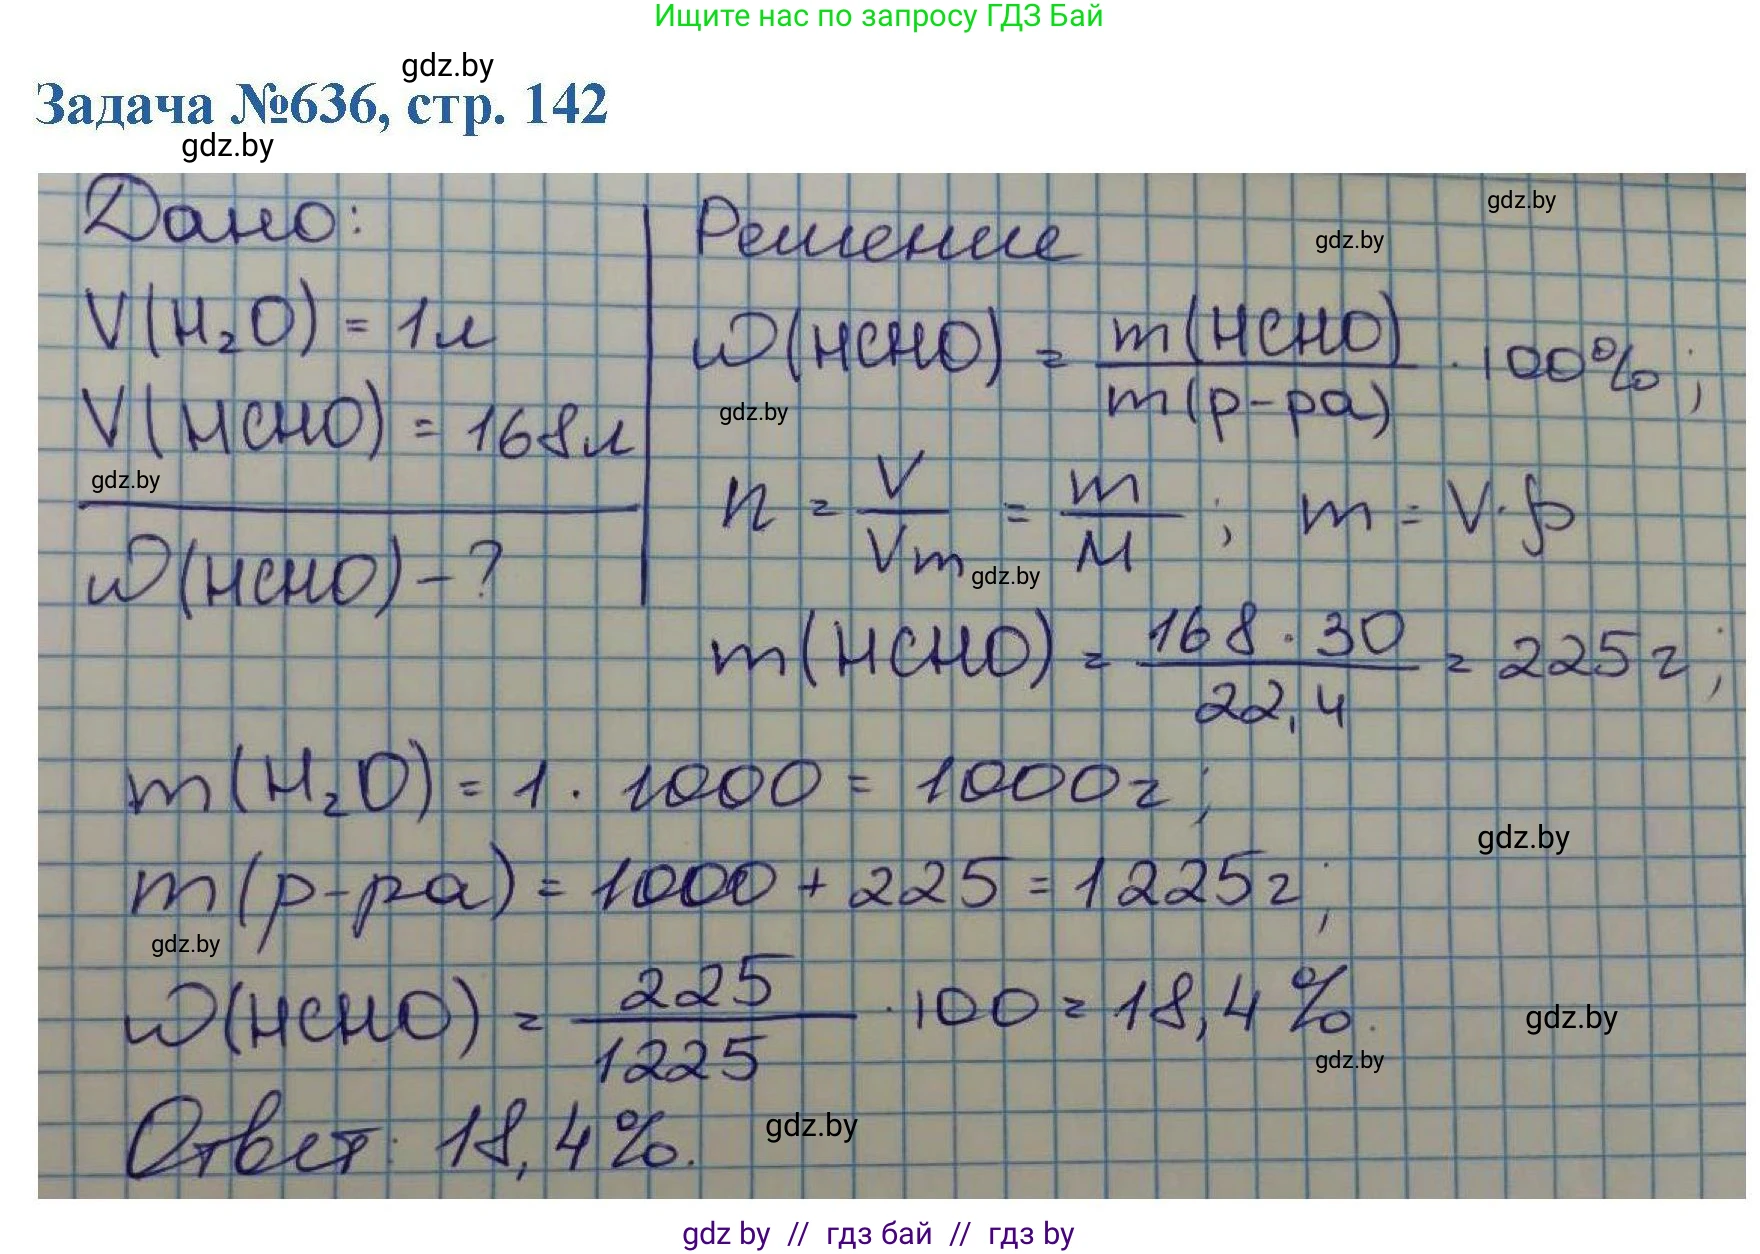 Ищите нас по запросу ГДЗ Бай
gdz.by
Задача №636, стр. 142
gdz.by
Дано:
V(H₂O) = 1л
V(HCHO) = 168л
gdz.by
ω(HCHO) - ?
Решение
gdz.by
gdz.by
ω(HCHO) = m(HCHO) / m(р-ра) · 100%;
gdz.by
n = V / Vm = m / M ; m = V·ρ
gdz.by
m(HCHO) = 168 · 30 / 22,4 = 225г;
m(H₂O) = 1 · 1000 = 1000г;
gdz.by
m(р-ра) = 1000 + 225 = 1225г;
gdz.by
ω(HCHO) = 225 / 1225 · 100 = 18,4%.
gdz.by
gdz.by
Ответ: 18,4%.
gdz.by
gdz by // гдз бай // гдз by